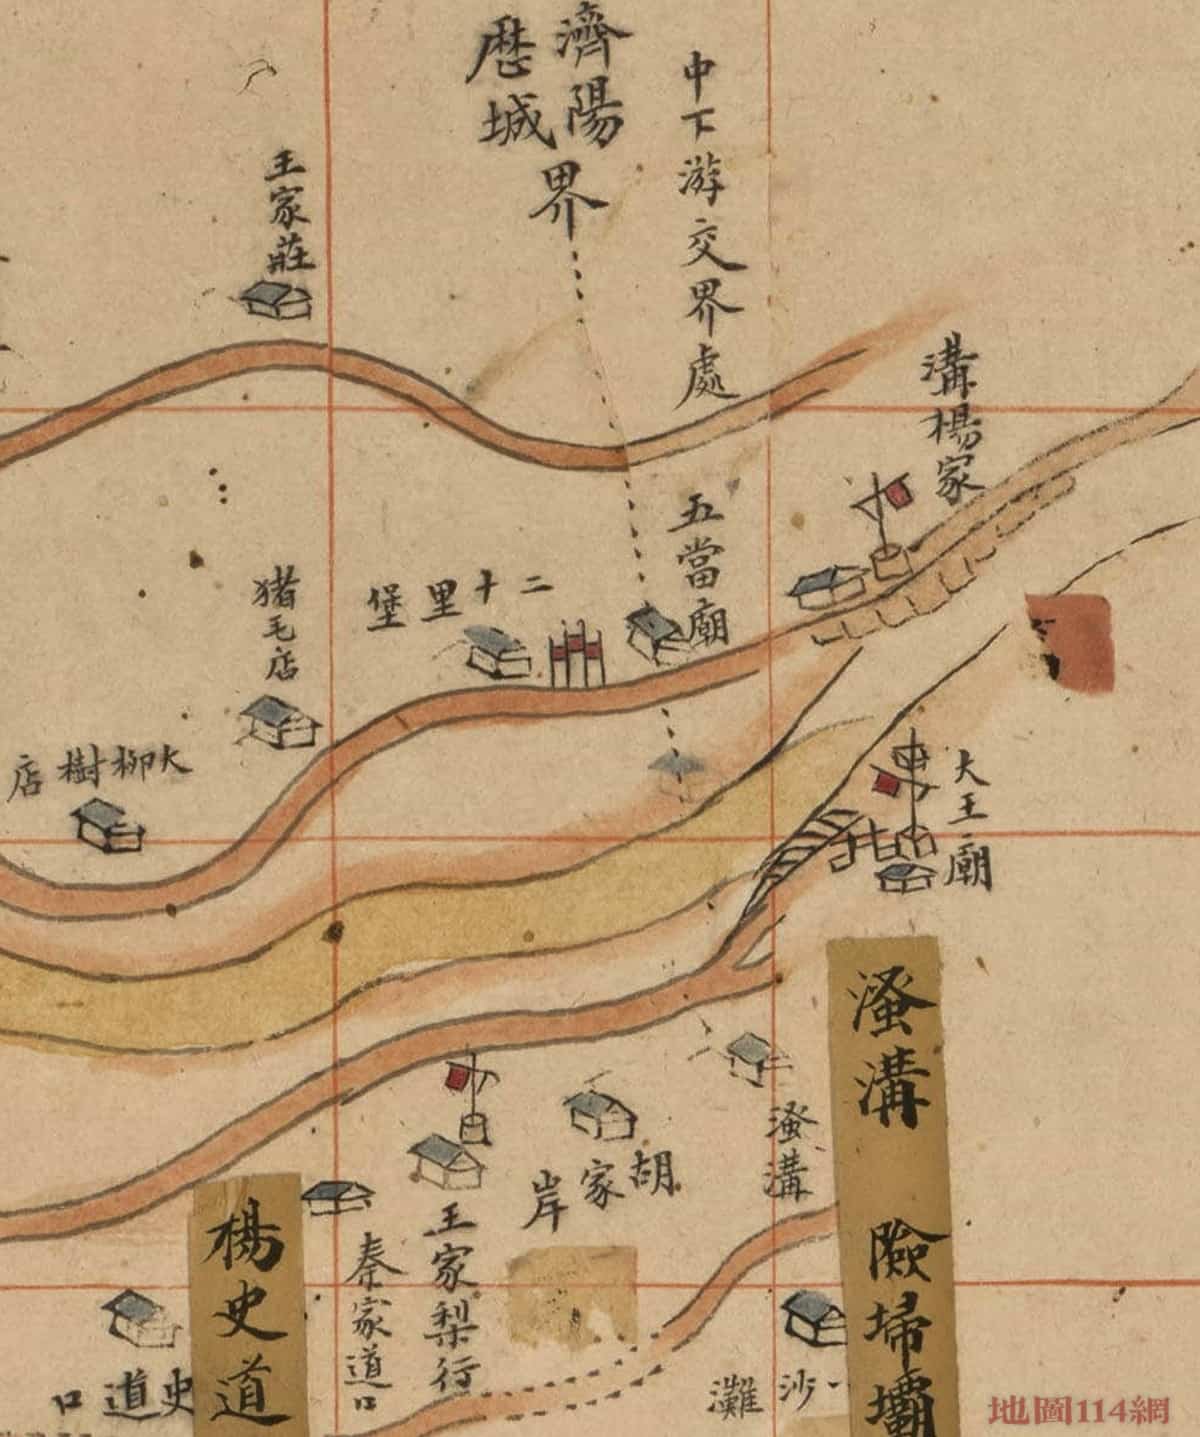 濟陽
歷城
界
中下游交界處
王家莊
溝楊家
五當廟
二十里堡
猪毛店
大柳樹店
大王廟
溞溝
險埽壩
溞溝
胡家岸
王家梨行
秦家道口
楊史道
史道口
沙灘
地圖114網